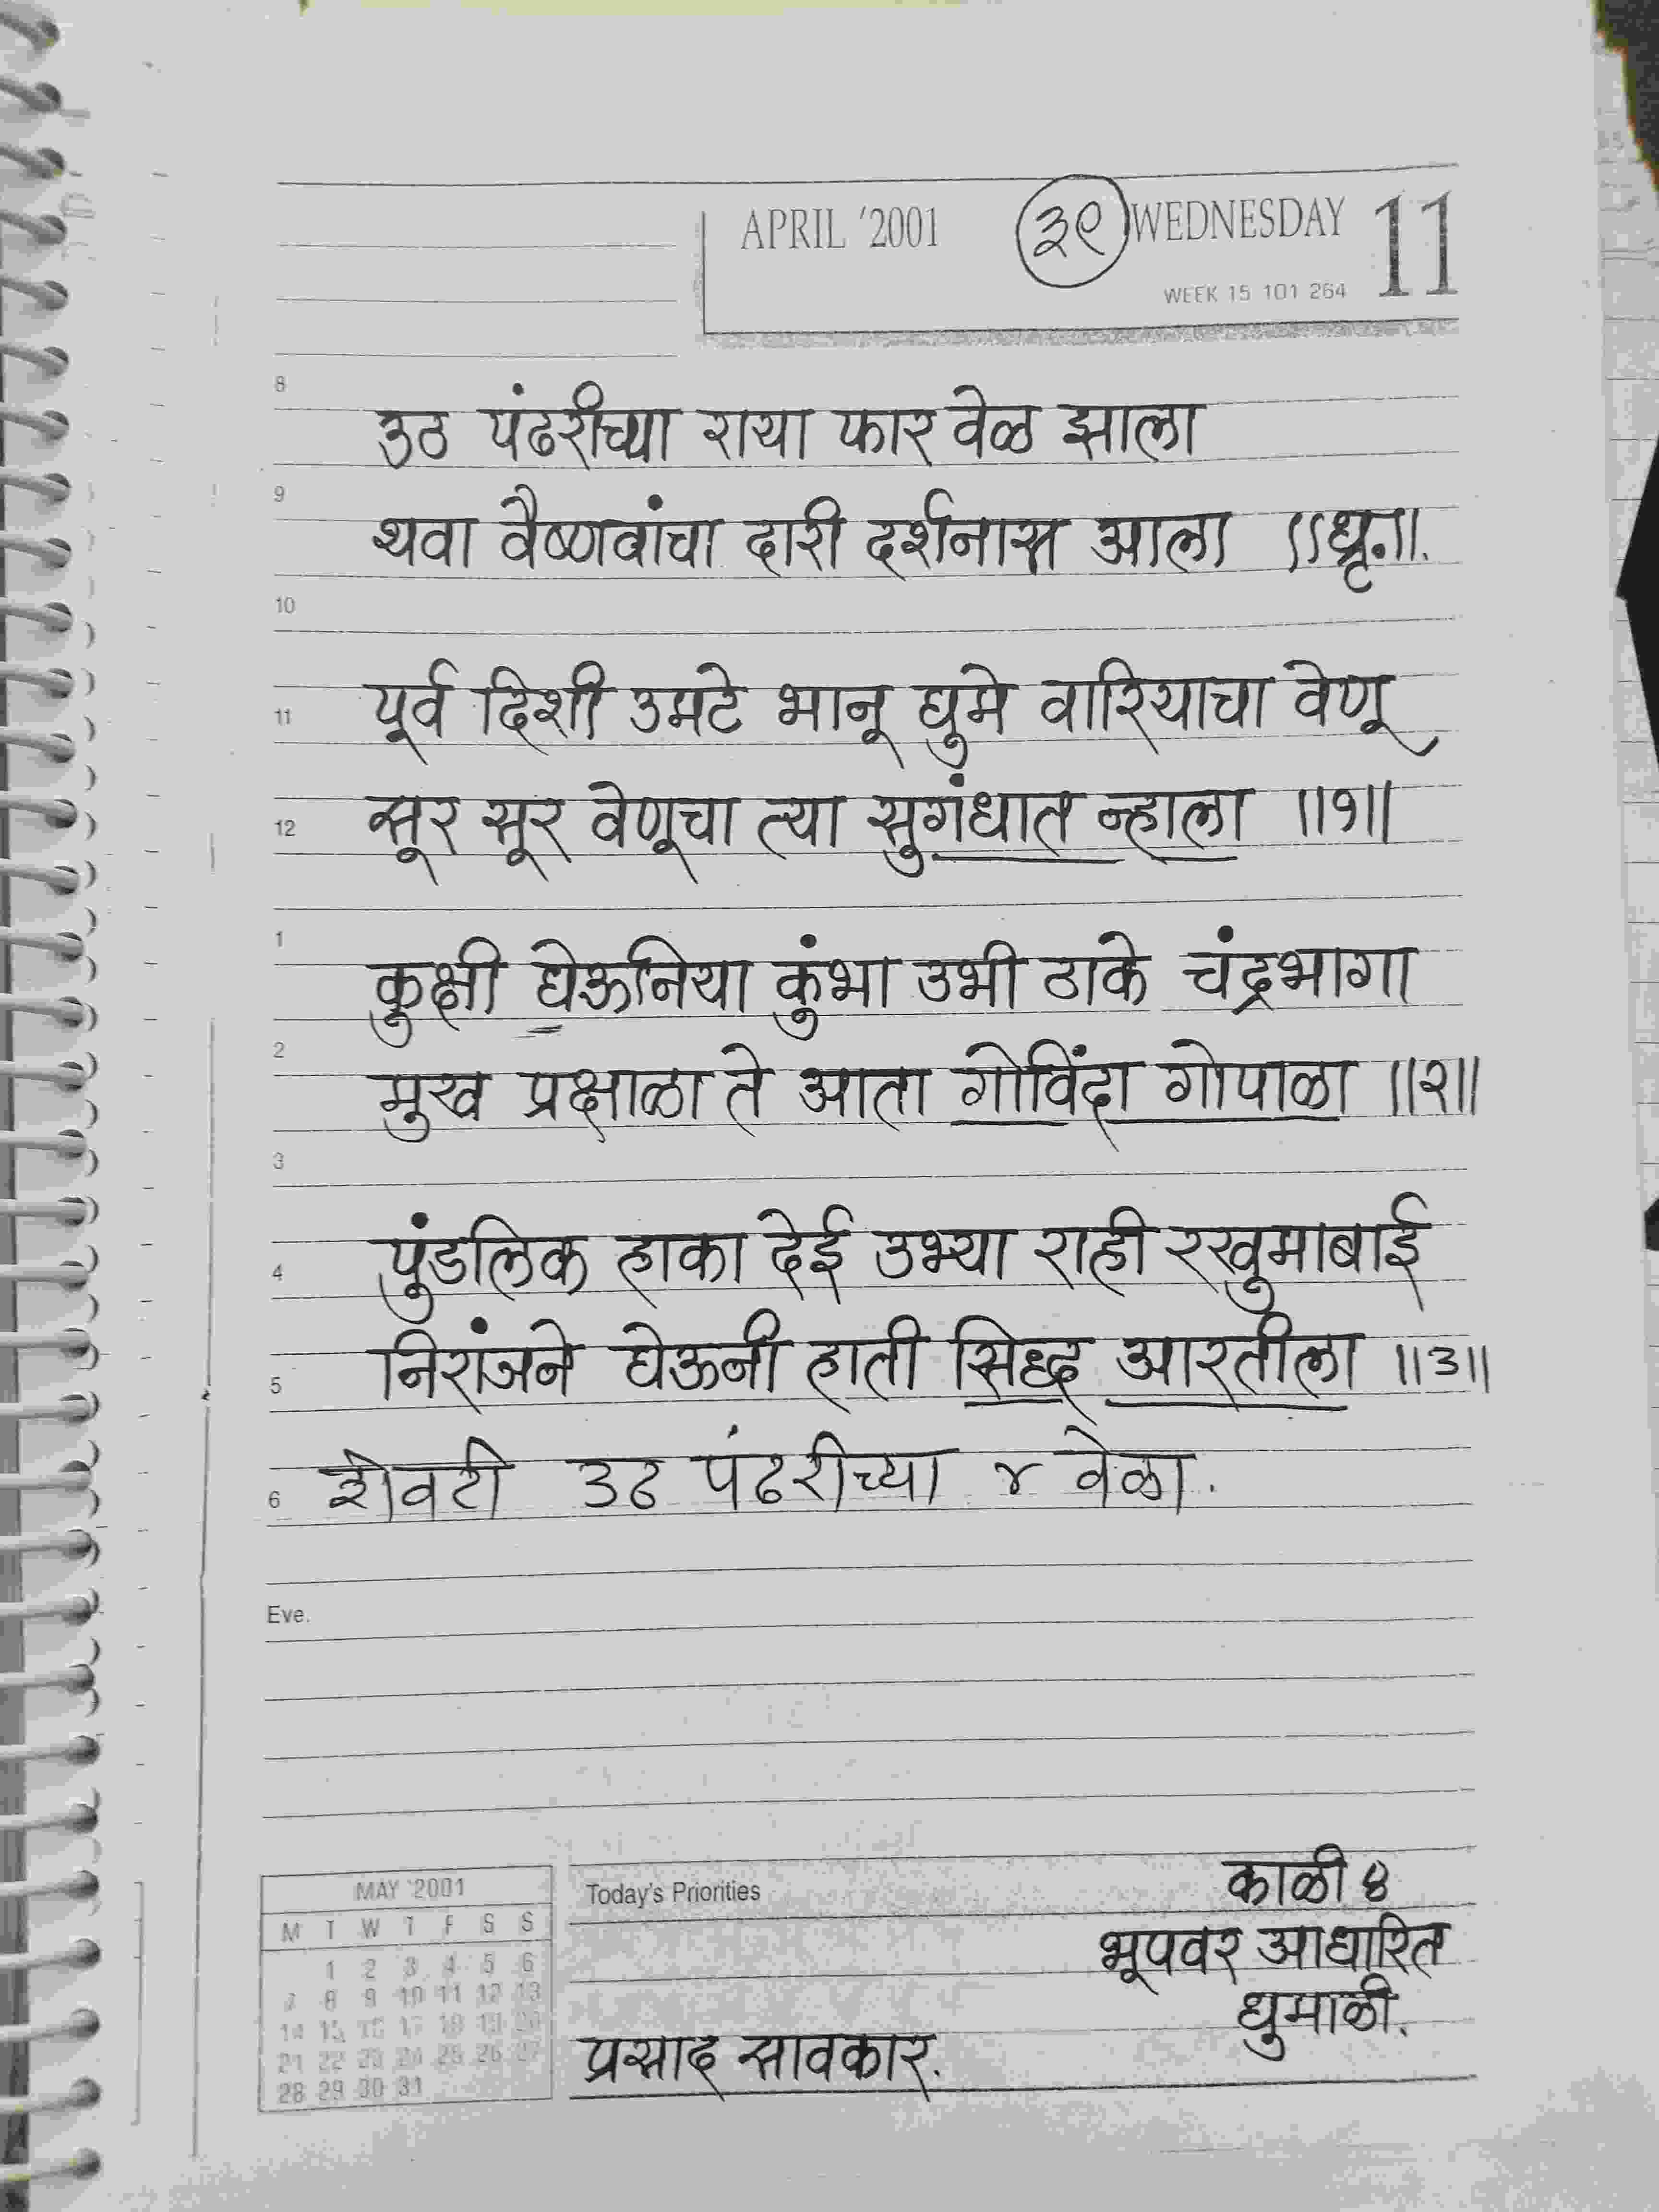 APRIL '2001 ३९ WEDNESDAY 11
WEEK 15 101 264
8
उठ पंढरीच्या राया फार वेळ झाला
9
थवा वैष्णवांचा दारी दर्शनास आला ॥धृ.॥.
10
11 पूर्व दिशी उमटे भानू घुमे वारियाचा वेणू
12 सूर सूर वेणूचा त्या सुगंधात न्हाला ॥१॥
1
कुक्षी घेऊनिया कुंभा उभी ठाके चंद्रभागा
2
मुख प्रक्षाळा ते आता गोविंदा गोपाळा ॥२॥
3
4 पुंडलिक हाका देई उभ्या राही रखुमाबाई
5 निरांजने घेऊनी हाती सिद्ध आरतीला ॥३॥
6 शेवटी उठ पंढरीच्या ४ वेळा.
Eve.
MAY '2001
M T W T F S S
1 2 3 4 5 6
7 8 9 10 11 12 13
14 15 16 17 18 19 20
21 22 23 24 25 26 27
28 29 30 31
Today's Priorities
काळी ४
भूपवर आधारित
धुमाळी.
प्रसाद सावकार.